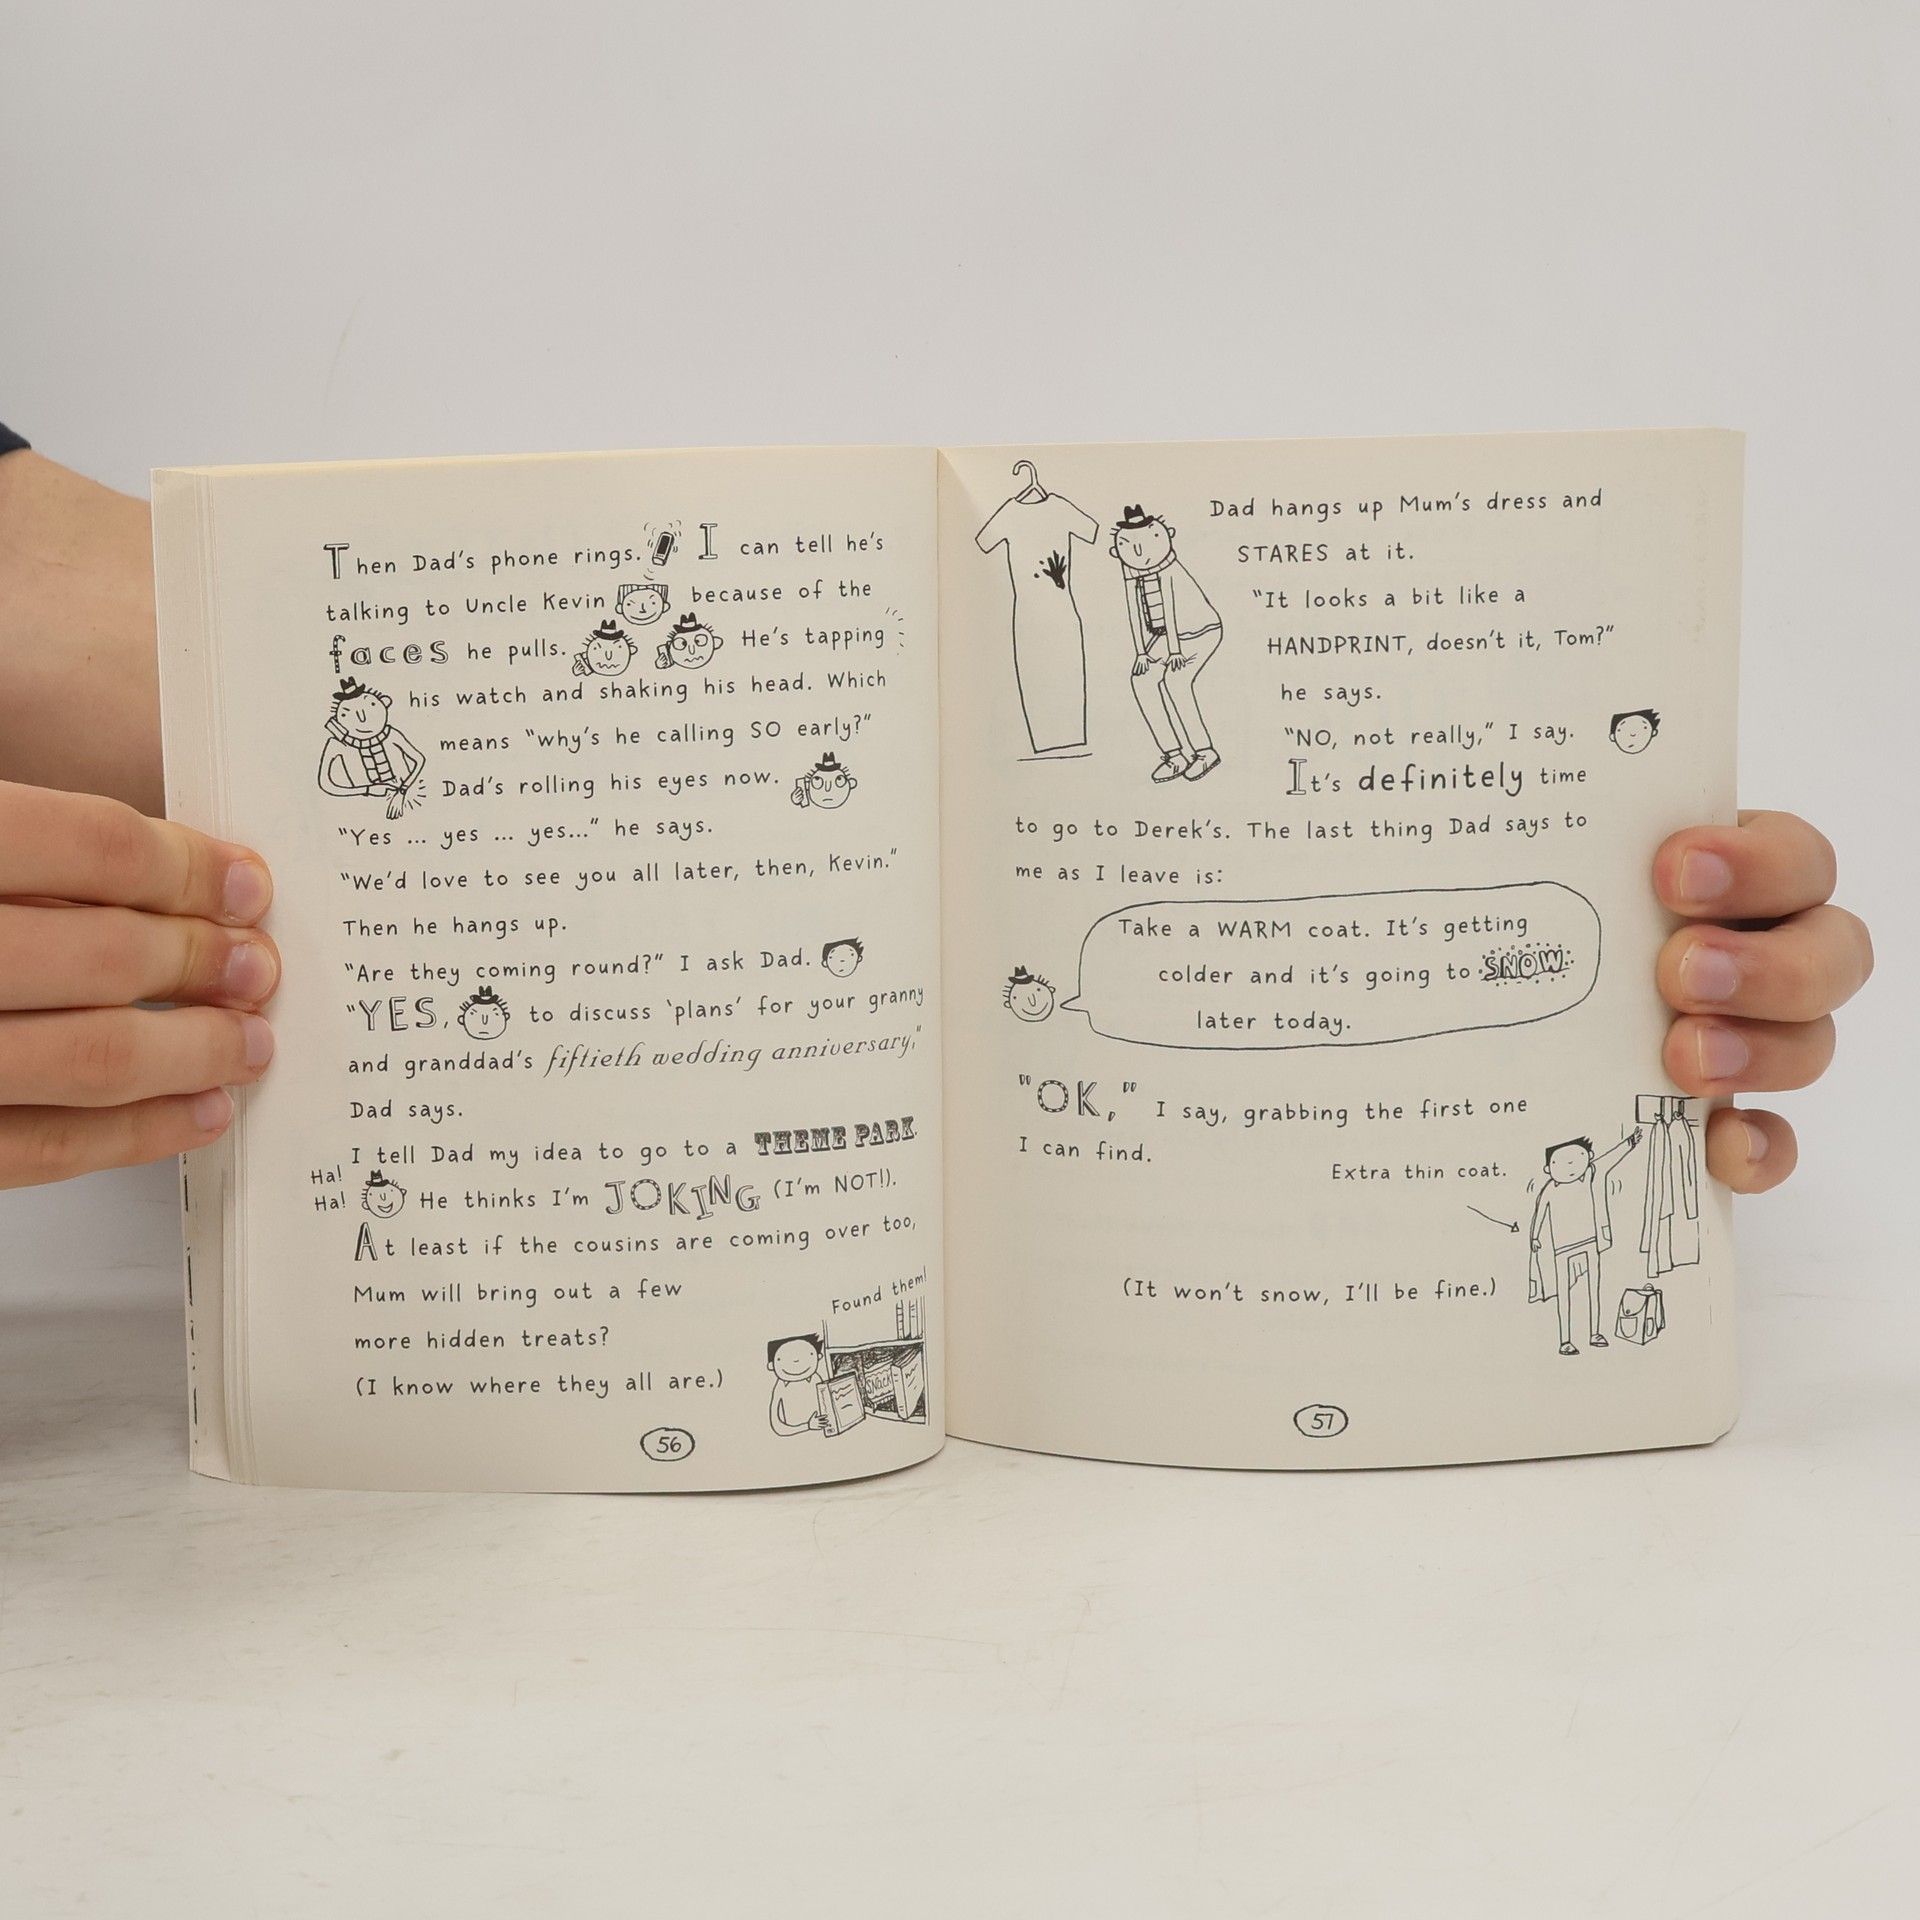 Then Dad's phone rings. I can tell he's
talking to Uncle Kevin because of the
faces he pulls. He's tapping
his watch and shaking his head. Which
means "why's he calling SO early?"
Dad's rolling his eyes now.
"Yes ... yes ... yes..." he says.
"We'd love to see you all later, then, Kevin."
Then he hangs up.
"Are they coming round?" I ask Dad.
"YES, to discuss 'plans' for your granny
and granddad's fiftieth wedding anniversary,"
Dad says.
I tell Dad my idea to go to a THEME PARK.
Ha!
Ha!
He thinks I'm JOKING (I'm NOT!).
At least if the cousins are coming over too,
Mum will bring out a few
more hidden treats?
(I know where they all are.)
Found them!
SNACK
56
Dad hangs up Mum's dress and
STARES at it.
"It looks a bit like a
HANDPRINT, doesn't it, Tom?"
he says.
"NO, not really," I say.
It's definitely time
to go to Derek's. The last thing Dad says to
me as I leave is:
Take a WARM coat. It's getting
colder and it's going to SNOW
later today.
"OK," I say, grabbing the first one
I can find.
Extra thin coat.
(It won't snow, I'll be fine.)
57